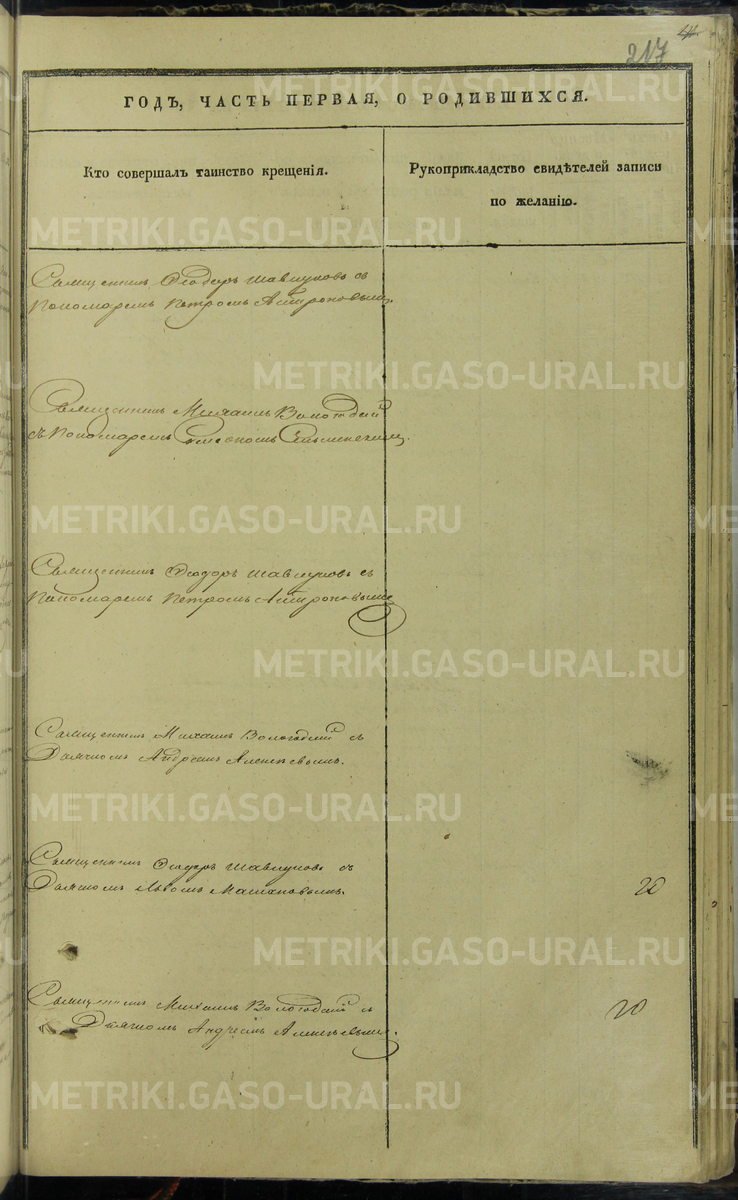 217
ГОДЪ, ЧАСТЬ ПЕРВАЯ, О РОДИВШИХСЯ.
Кто совершалъ таинство крещенія.
Рукоприкладство свидѣтелей записи
по желанію.
Священникъ Ѳеодоръ Шавкуновъ съ
Пономаремъ Петромъ
Священникъ Михаилъ Вологодскій
съ Пономаремъ
Священникъ Ѳеодоръ Шавкуновъ съ
Пономаремъ Петромъ
Священникъ Михаилъ Вологодскій съ
Дьячкомъ Андреемъ Алексѣевымъ.
Священникъ Ѳеодоръ Шавкуновъ съ
Дьячкомъ
20
Священникъ Михаилъ Вологодскій съ
Дьячкомъ Андреемъ Алексѣевымъ.
20
METRIKI.GASO-URAL.RU
METRIKI.GASO-URAL.RU
METRIKI.GASO-URAL.RU
METRIKI.GASO-URAL.RU
METRIKI.GASO-URAL.RU
METRIKI.GASO-URAL.RU
METRIKI.GASO-URAL.RU
METRIKI.GASO-URAL.RU